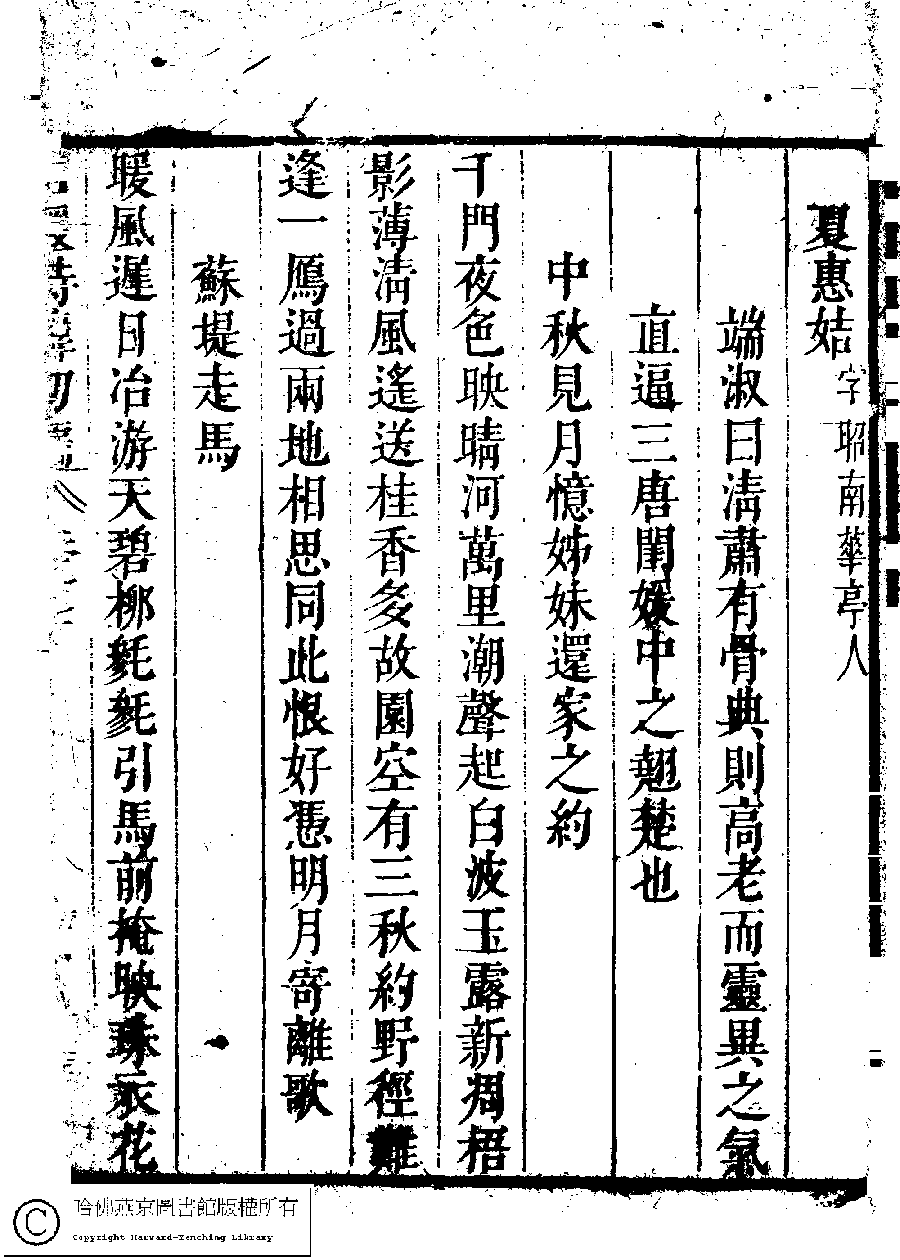 夏惠姞字昭南華亭人
端淑曰清肅有骨典則高老而靈異之氣
直逼三唐閨媛中之翹楚也
中秋見月憶姊妹還家之約
千門夜色映晴河萬里潮聲起白波玉露新凋梧
影薄清風遙送桂香多故園空有三秋約野徑難
逢一鴈過兩地相思同此恨好憑明月寄離歌
蘇堤走馬
暖風遲日冶游天碧栁毿毿引馬前掩映珠衣花
詩 初
哈佛燕京圖書館版權所有
Copyright Harvard-Yenching Library